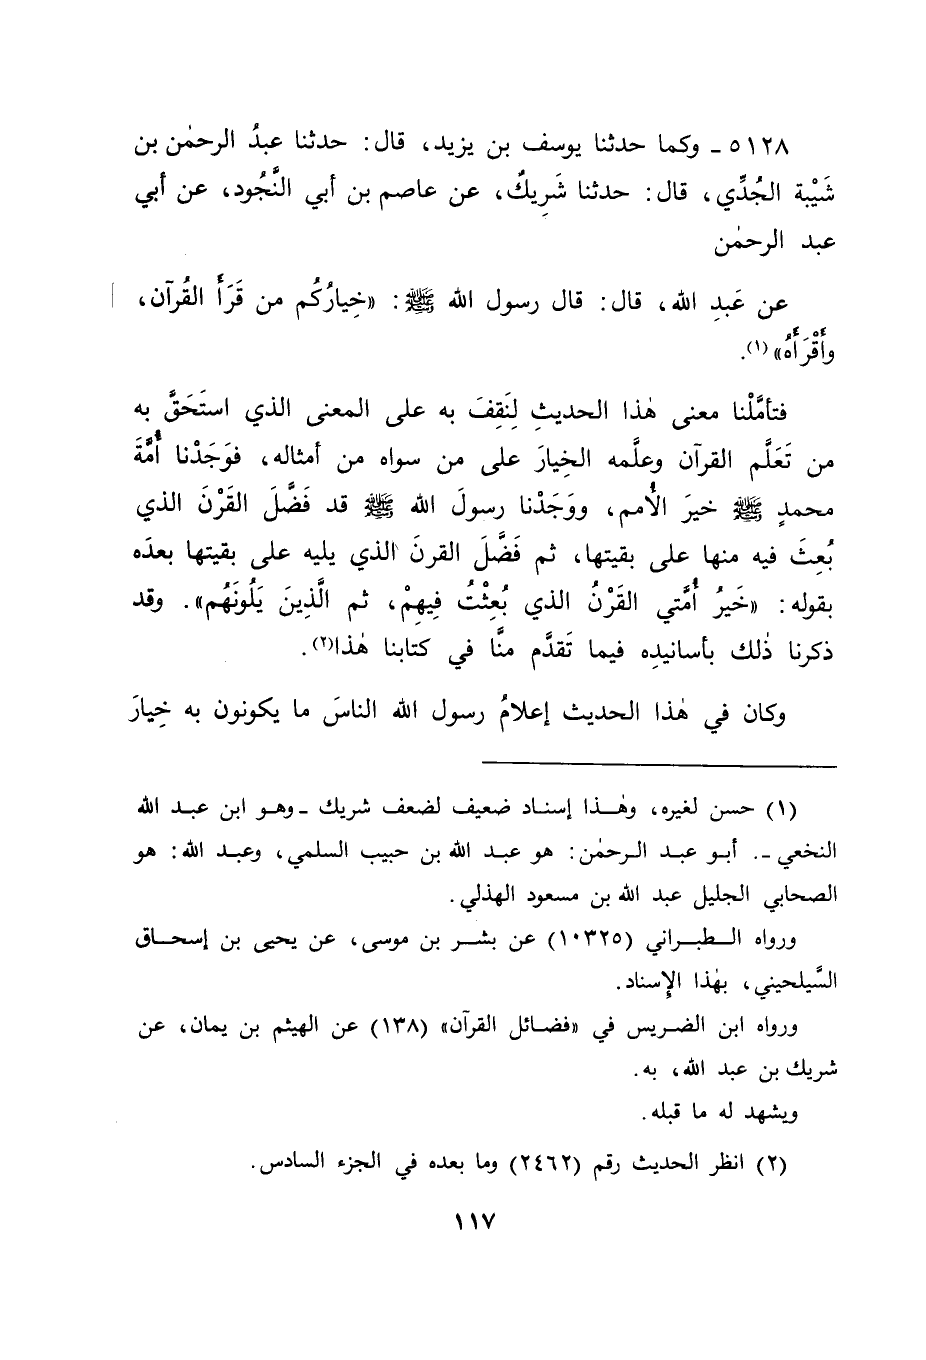 ٥١٢٨ ـ وكما حدثنا يوسف بن يزيد، قال: حدثنا عبدُ الرحمٰن بن
شَيْبة الجُدِّي، قال: حدثنا شَرِيكٌ، عن عاصم بن أبي النَّجُود، عن أبي
عبد الرحمٰن
عن عَبدِ الله، قال: قال رسول الله ﷺ: «خِيارُكُم من قَرَأَ القُرآن،
وأَقْرَأَهُ»(١).
فتأمَّلْنا معنى هٰذا الحديثِ لِنَقِفَ به على المعنى الذي استَحَقَّ به
من تَعَلَّم القرآن وعلَّمه الخِيارَ على من سواه من أمثاله، فوَجَدْنا أُمَّةَ
محمدٍ ﷺ خيرَ الأُمم، ووَجَدْنا رسولَ الله ﷺ قد فَضَّلَ القَرْنَ الذي
بُعِثَ فيه منها على بقيتها، ثم فَضَّلَ القرنَ الذي يليه على بقيتها بعدَه
بقوله: «خَيرُ أُمَّتي القَرْنُ الذي بُعِثْتُ فِيهِمْ، ثم الَّذِينَ يَلُونَهُم». وقد
ذكرنا ذٰلك بأسانيدِه فيما تَقدَّم منَّا في كتابنا هٰذا(٢).
وكان في هٰذا الحديث إعلامُ رسول الله الناسَ ما يكونون به خِيارَ
(١) حسن لغيره، وهٰذا إسناد ضعيف لضعف شريك ـ وهو ابن عبد الله
النخعي ـ. أبو عبد الرحمٰن: هو عبد الله بن حبيب السلمي، وعبد الله: هو
الصحابي الجليل عبد الله بن مسعود الهذلي.
ورواه الطبراني (١٠٣٢٥) عن بشر بن موسى، عن يحيى بن إسحاق
السَّيلحيني، بهٰذا الإِسناد.
ورواه ابن الضريس في «فضائل القرآن» (١٣٨) عن الهيثم بن يمان، عن
شريك بن عبد الله، به.
ويشهد له ما قبله.
(٢) انظر الحديث رقم (٢٤٦٢) وما بعده في الجزء السادس.
١١٧